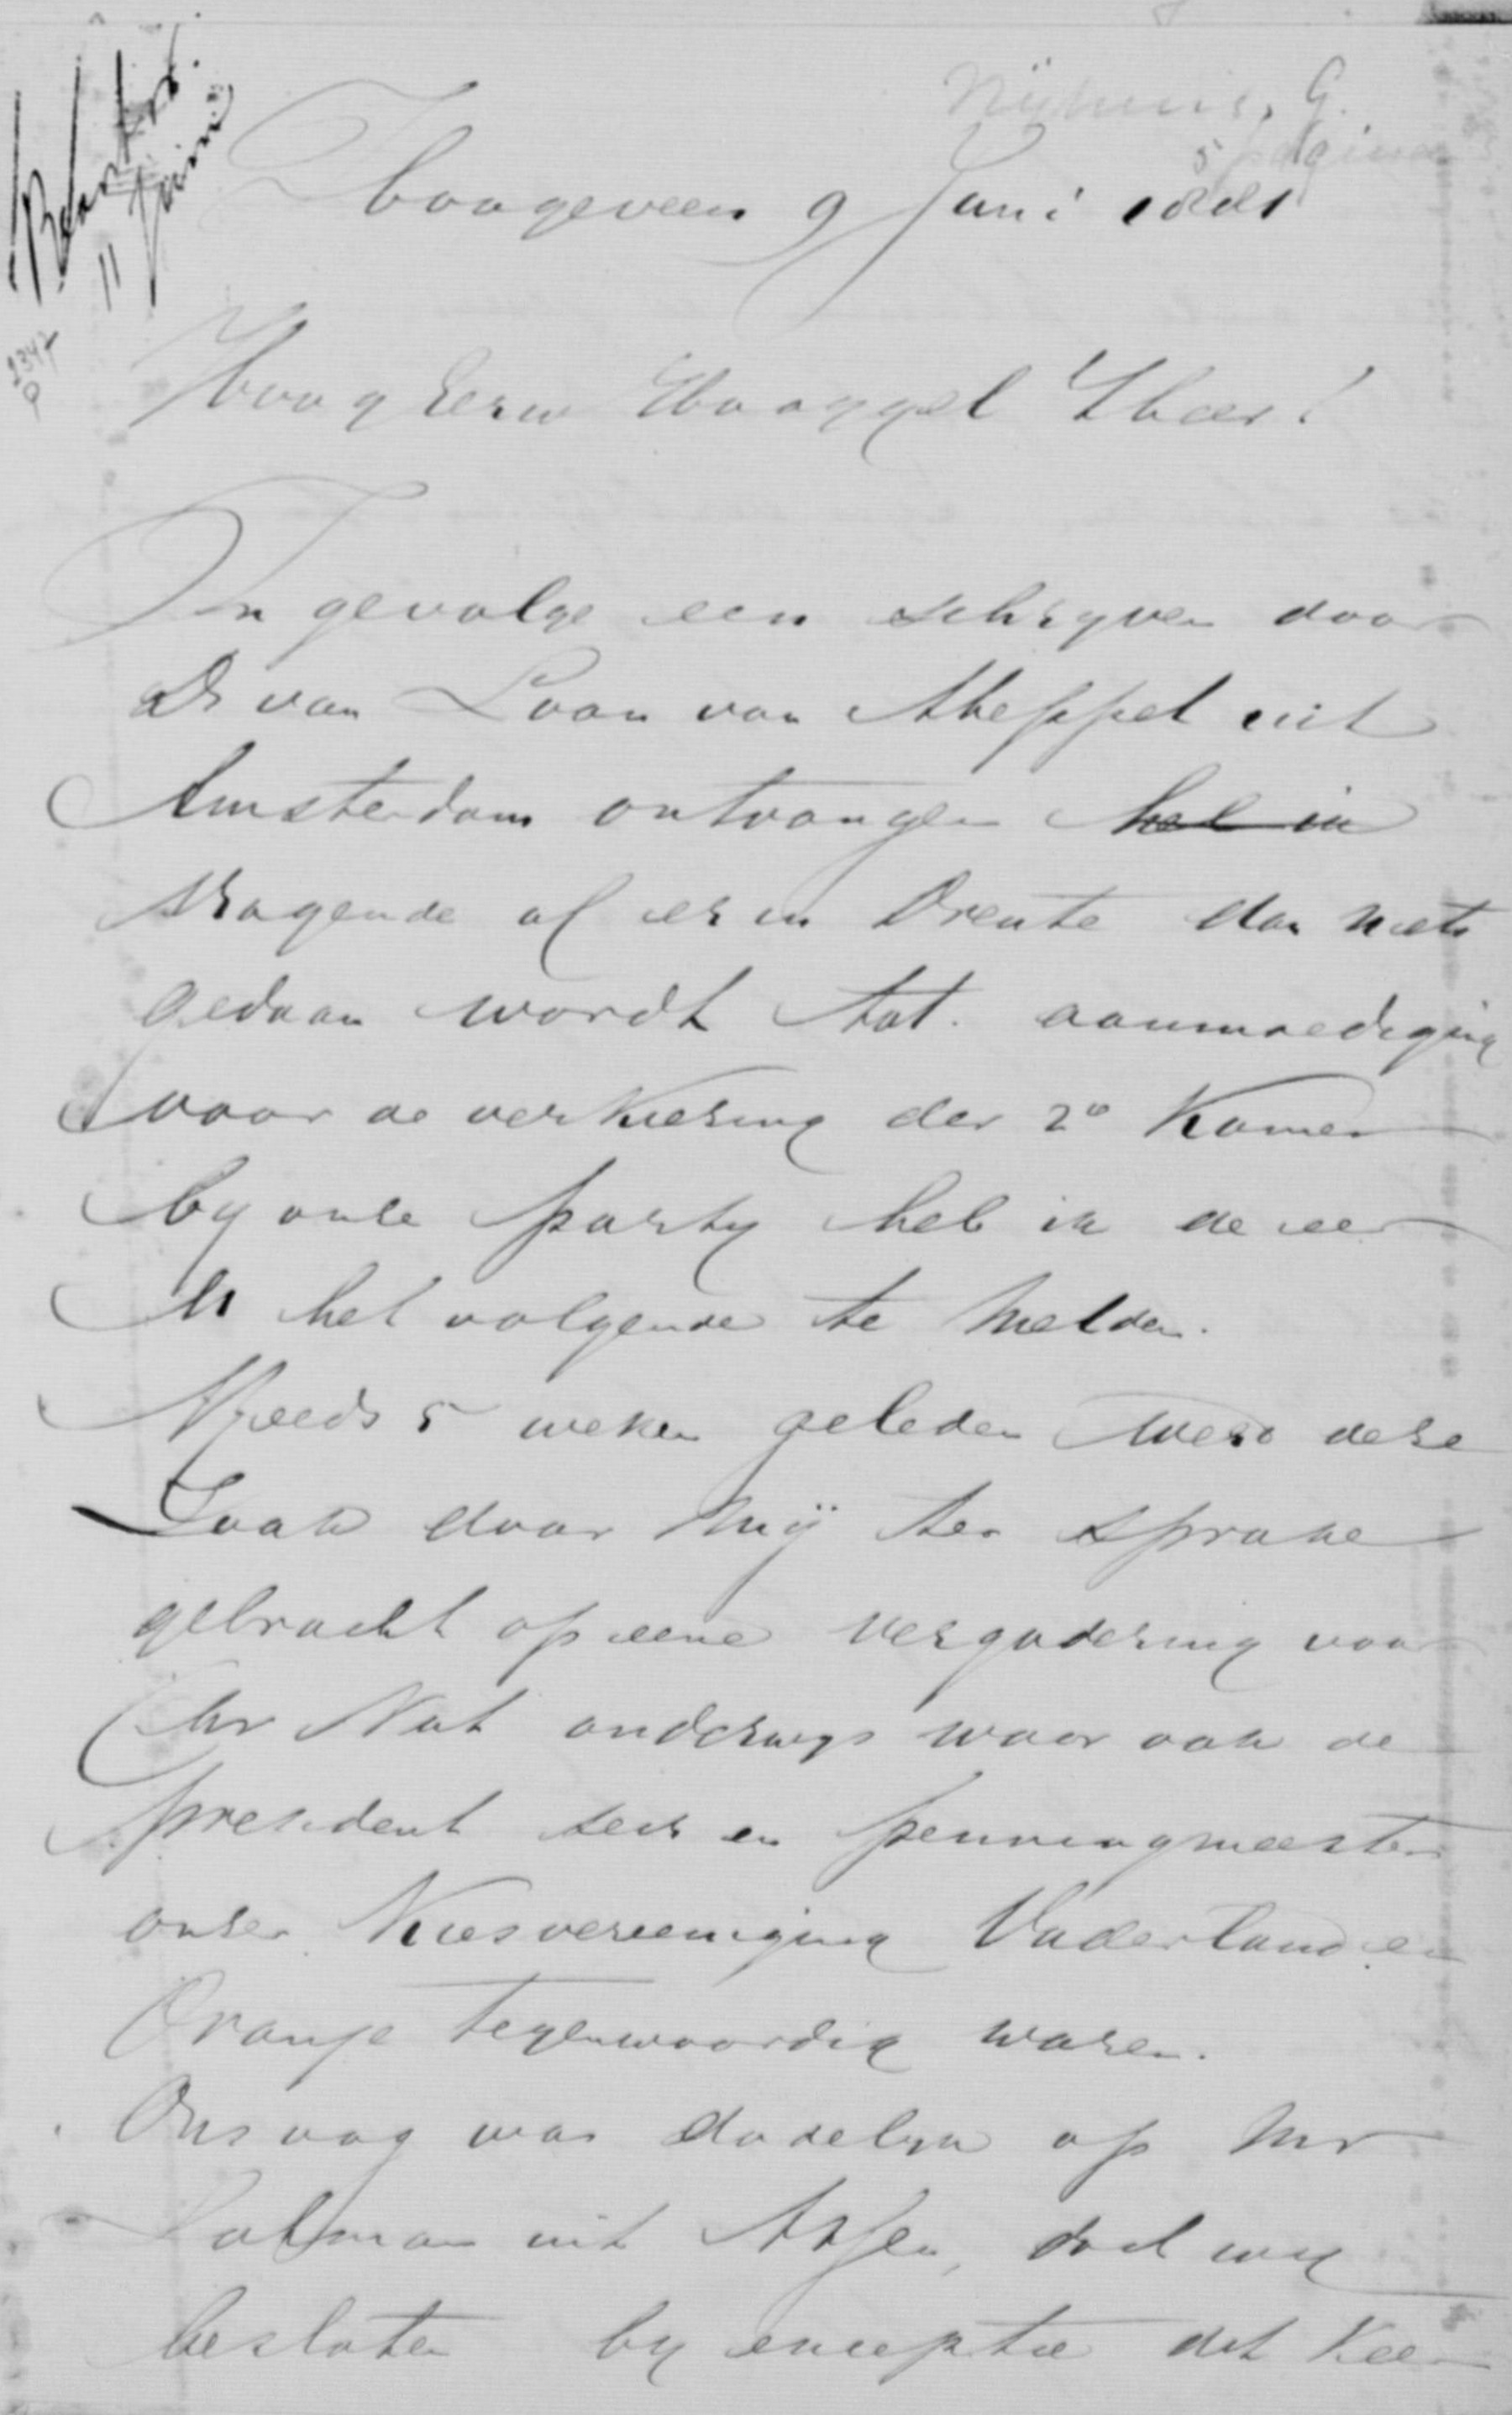 Beantw.
11 Juni
2347
Nijhuis, G.
5 pagina
Hoogeveen 9 Juni 1881
Hoog Eerw Hooggel Heer!
In gevolge een schryven door
Ds van Loon van Meppel uit
Amsterdam ontvangen heb ik
vragende of er in Drente dan niets
gedaan wordt tot aanmoediging
voor de verkiesing der 2e Kamer
by onse party heb ik de eer
U het volgende te melden.
Reeds 5 weken geleden werd dese
Zaak door mij ter sprake
gebracht op eene vergadering voor
Chr Nat onderwys waar ook de
president secr en penningmeester
onser Kiesvereeniging Vaderland en
Oranje tegenwoordig waren.
Ons oog was dadelyk op Mr
Lohman uit Assen, doch wy
besloten by exceptie dit keer